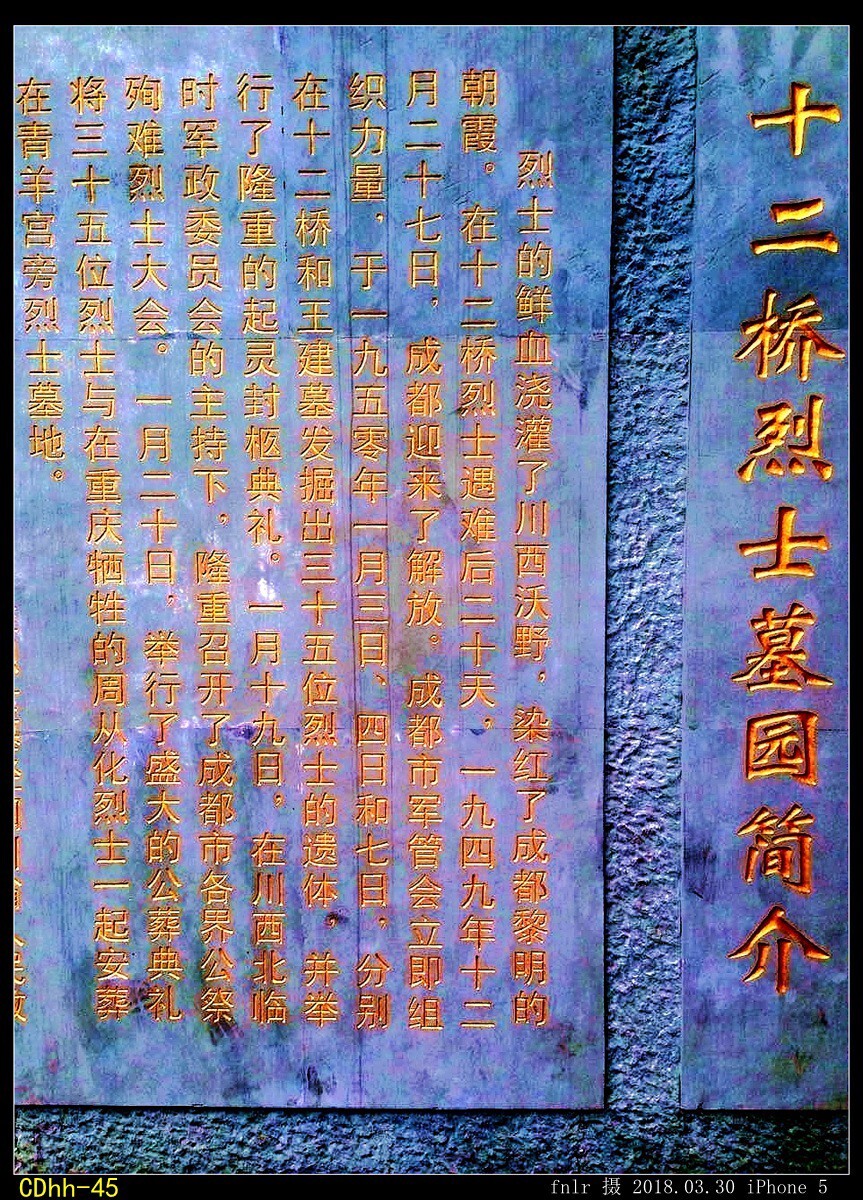 十二桥烈士墓园简介
烈士的鲜血浇灌了川西沃野，染红了成都黎明的
朝霞。在十二桥烈士遇难后二十天，一九四九年十二
月二十七日，成都迎来了解放。成都市军管会立即组
织力量，于一九五零年一月三日、四日和七日，分别
在十二桥和王建墓发掘出三十五位烈士的遗体，并举
行了隆重的起灵封柩典礼。一月十九日，在川西北临
时军政委员会的主持下，隆重召开了成都市各界公祭
殉难烈士大会。一月二十日，举行了盛大的公葬典礼
将三十五位烈士与在重庆牺牲的周从化烈士一起安葬
在青羊宫旁烈士墓地。
CDhh-45
fnlr 摄 2018.03.30 iPhone 5